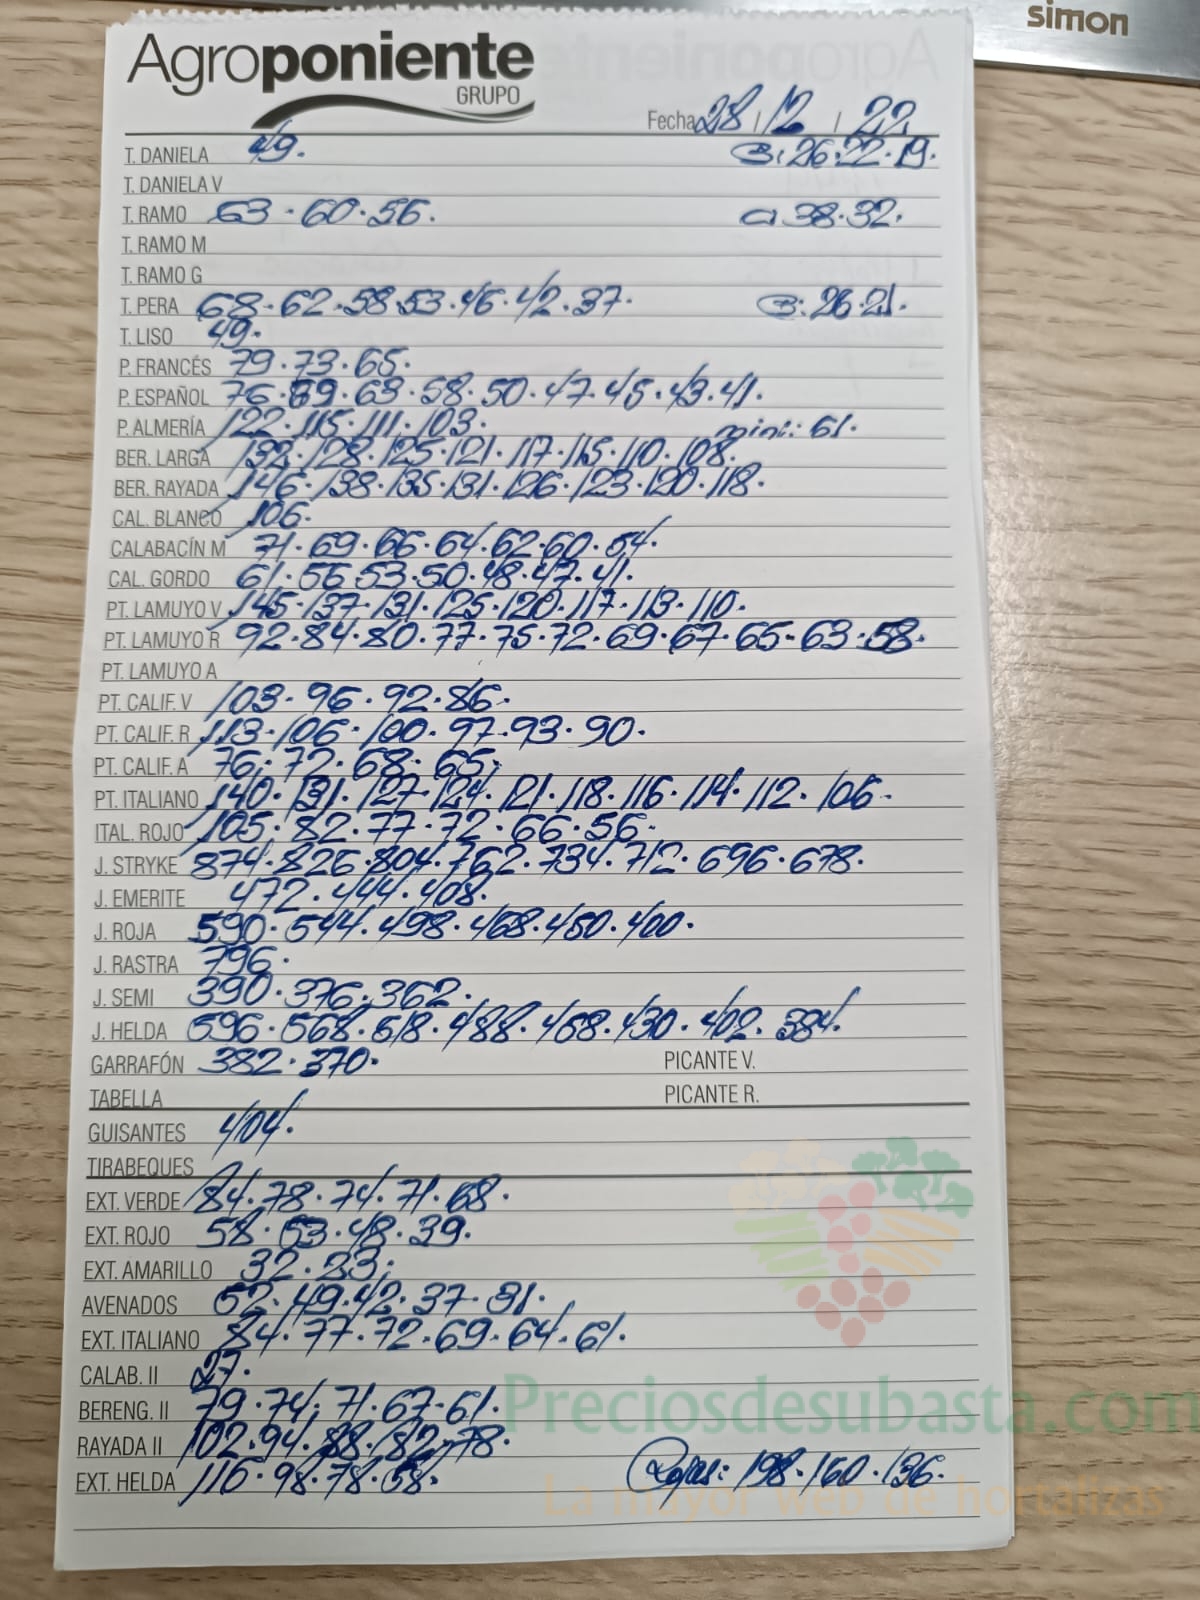 simon
Agroponiente
GRUPO
Fecha 28 / 12 / 22
T. DANIELA 49. B: 26.22.19.
T. DANIELA V
T. RAMO 63.60.56. C 38.32.
T. RAMO M
T. RAMO G
T. PERA 68.62.58.53.46.42.37. B: 26.21.
T. LISO 49.
P. FRANCÉS 79.73.65.
P. ESPAÑOL 76.69.63.58.50.47.45.43.41.
P. ALMERÍA 122.115.111.103. mini: 61.
BER. LARGA 132.128.125.121.117.115.110.108.
BER. RAYADA 146.138.135.131.126.123.120.118.
CAL. BLANCO 106.
CALABACÍN M 71.69.66.64.62.60.54.
CAL. GORDO 61.56.53.50.48.47.41.
PT. LAMUYO V 145.137.131.125.120.117.113.110.
PT. LAMUYO R 92.84.80.77.75.72.69.67.65.63.58.
PT. LAMUYO A
PT. CALIF. V 103.96.92.86.
PT. CALIF. R 113.106.100.97.93.90.
PT. CALIF. A 76.72.68.65.
PT. ITALIANO 140.131.127.124.121.118.116.114.112.106.
ITAL. ROJO 105.82.77.72.66.56.
J. STRYKE 874.826.804.762.734.712.696.678.
J. EMERITE 472.444.408.
J. ROJA 590.544.498.468.450.400.
J. RASTRA 796.
J. SEMI 390.376.362.
J. HELDA 596.568.518.488.468.430.402.384.
GARRAFÓN 382.370. PICANTE V.
TABELLA PICANTE R.
GUISANTES 404.
TIRABEQUES
EXT. VERDE 84.78.74.71.68.
EXT. ROJO 58.53.48.39.
EXT. AMARILLO 32.23.
AVENADOS 52.49.42.37.31.
EXT. ITALIANO 84.77.72.69.64.61.
CALAB. II 27.
BERENG. II 79.74.71.67.61.
Preciosdesubasta.com
RAYADA II 102.94.88.82.78.
EXT. HELDA 116.98.78.58. Rojas: 198.160.136.
La mayor web de hortalizas